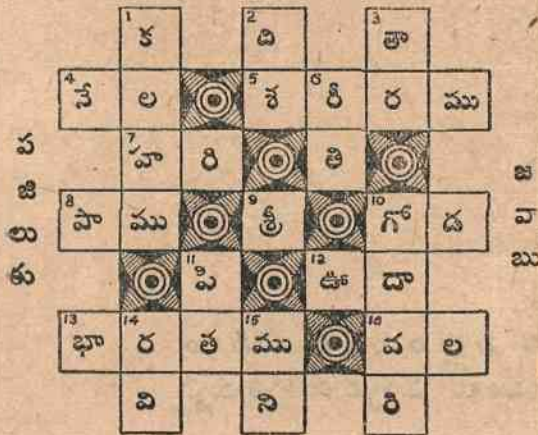 1 క 2 ది 3 తా
4 వే ల 5 శ 6 రీ ర ము
7 హ రి తి
8 పా ము 9 శ్రీ 10 గో డ
11 పి 12 ఊ దా
13 భా 14 ర త 15 ము 16 వ ల
వి ని రి
ప
జి
లు
కు
జ
వా
బు